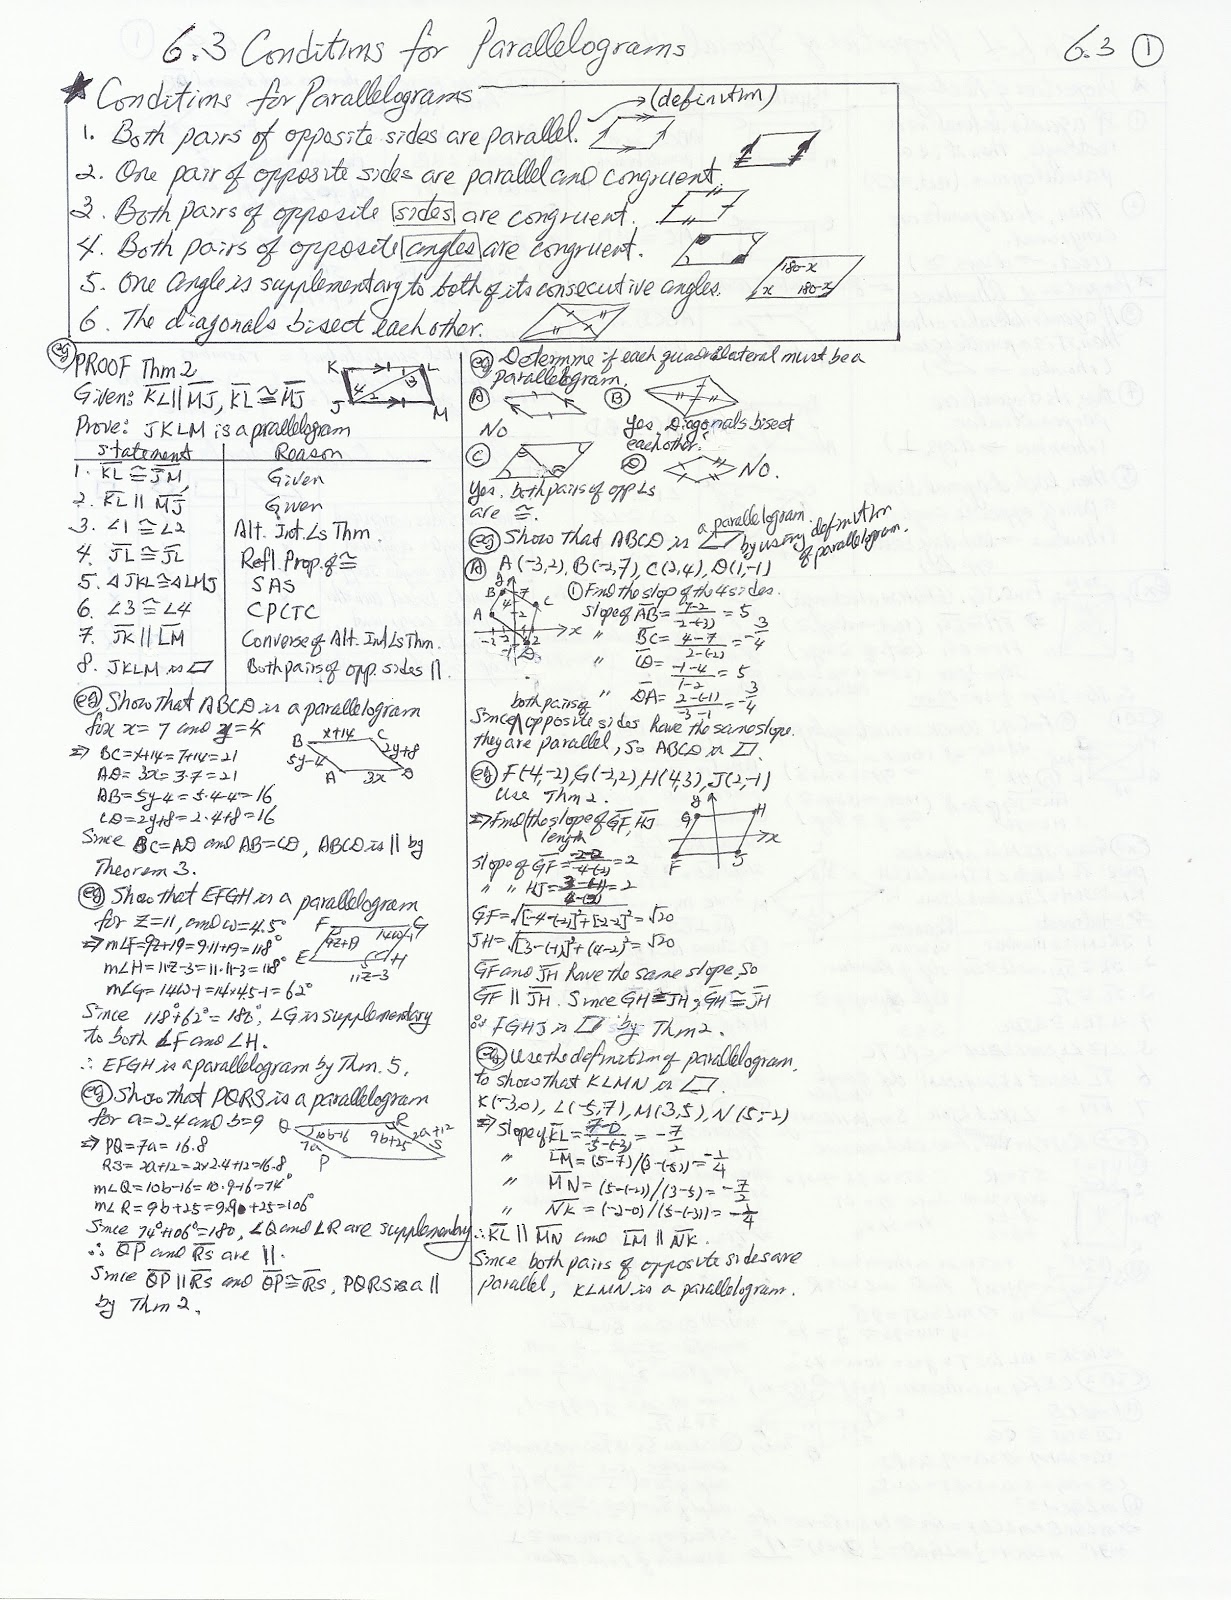 6.3 Conditions for Parallelograms
6.3 ①
★ Conditions for Parallelograms
→ (definition)
1. Both pairs of opposite sides are parallel.
2. One pair of opposite sides are parallel and congruent.
3. Both pairs of opposite sides are congruent.
4. Both pairs of opposite angles are congruent.
5. One Angle is supplementary to both of its consecutive angles.
180-x
x 180-x
6. The diagonals bisect each other.
eg PROOF Thm 2
Given: KL || MJ, KL ≅ MJ
Prove: JKLM is a parallelogram
K L
4 3
J 2 M
Statement Reason
1. KL ≅ JM, Given
2. KL || MJ Given
3. ∠1 ≅ ∠2 Alt. Int. ∠s Thm.
4. JL ≅ JL Refl. Prop. of ≅
5. ΔJKL ≅ ΔLMJ SAS
6. ∠3 ≅ ∠4 CPCTC
7. JK || LM Converse of Alt. Int ∠s Thm.
8. JKLM is ▱ Both pairs of opp. sides ||.
eg Show that ABCD is a parallelogram
for x = 7 and y = 4
⇒ BC = x+14 = 7+14 = 21
AD = 3x = 3·7 = 21
AB = 5y-4 = 5·4-4 = 16
CD = 2y+8 = 2·4+8 = 16
B x+14 C
5y-4 2y+8
A 3x D
Since BC = AD and AB = CD, ABCD is || by
Theorem 3.
eg Show that EFGH is a parallelogram
for z = 11, and w = 4.5°
⇒ m∠F = 9z+19 = 9·11+19 = 118°
m∠H = 11z-3 = 11·11-3 = 118°
m∠G = 14w-1 = 14×4.5-1 = 62°
F G
E H
11z-3
Since 118°+62° = 180°, ∠G is supplementary
to both ∠F and ∠H.
∴ EFGH is a parallelogram by Thm. 5.
eg Show that PQRS is a parallelogram
for a = 2.4 and b = 9
⇒ PQ = 7a = 16.8
RS = 2a+12 = 2×2.4+12 = 16.8
m∠Q = 10b-16 = 10·9-16 = 74°
m∠R = 9b+25 = 9·9+25 = 106°
Q R
10b-16 9b+25 2a+12
7a S
P
Since 74°+106° = 180, ∠Q and ∠R are supplementary
∴ QP and RS are ||.
Since QP || RS and QP ≅ RS, PQRS is a ||
by Thm 2.
eg Determine if each quadrilateral must be a
parallelogram.
A B
No Yes, Diagonals bisect
each other.
C D No.
Yes, both pairs of opp ∠s
are ≅.
a parallelogram
eg Show that ABCD is ▱ by using definition
of parallelogram.
A A(-3,2), B(-2,7), C(2,4), D(1,-1)
① Find the slop of the 4 sides.
slope of AB = 7-2 / -2-(-3) = 5
" BC = 4-7 / 2-(-2) = -3/4
" CD = -1-4 / 1-2 = 5
" DA = 2-(-1) / -3-1 = -3/4
both pairs of
Since opposite sides have the same slope.
they are parallel, so ABCD is ▱.
eg F(-4,-2), G(-2,2), H(4,3), J(2,-1)
Use Thm 2.
⇒ Find the slope of GF, HJ
length
G H
x
F J
slope of GF = -2-2 / -4-(-2) = 2
" " HJ = 3-(-1) / 4-2 = 2
GF = √[-4-(-2)]²+[-2-2]² = √20
JH = √[3-(-1)]²+(4-2)² = √20
GF and JH have the same slope, so
GF || JH. Since GH = JH, GH ≅ JH
∴ FGHJ is ▱ by Thm 2.
eg Use the definition of parallelogram,
to show that KLMN is ▱.
K(-3,0), L(-5,7), M(3,5), N(5,-2)
⇒ Slope of KL = 7-0 / -5-(-3) = -7/2
" LM = (5-7)/(3-(-5)) = -1/4
" MN = (5-(-2))/(3-5) = -7/2
" NK = (-2-0)/(5-(-3)) = -1/4
∴ KL || MN and LM || NK.
Since both pairs of opposite sides are
parallel, KLMN is a parallelogram.